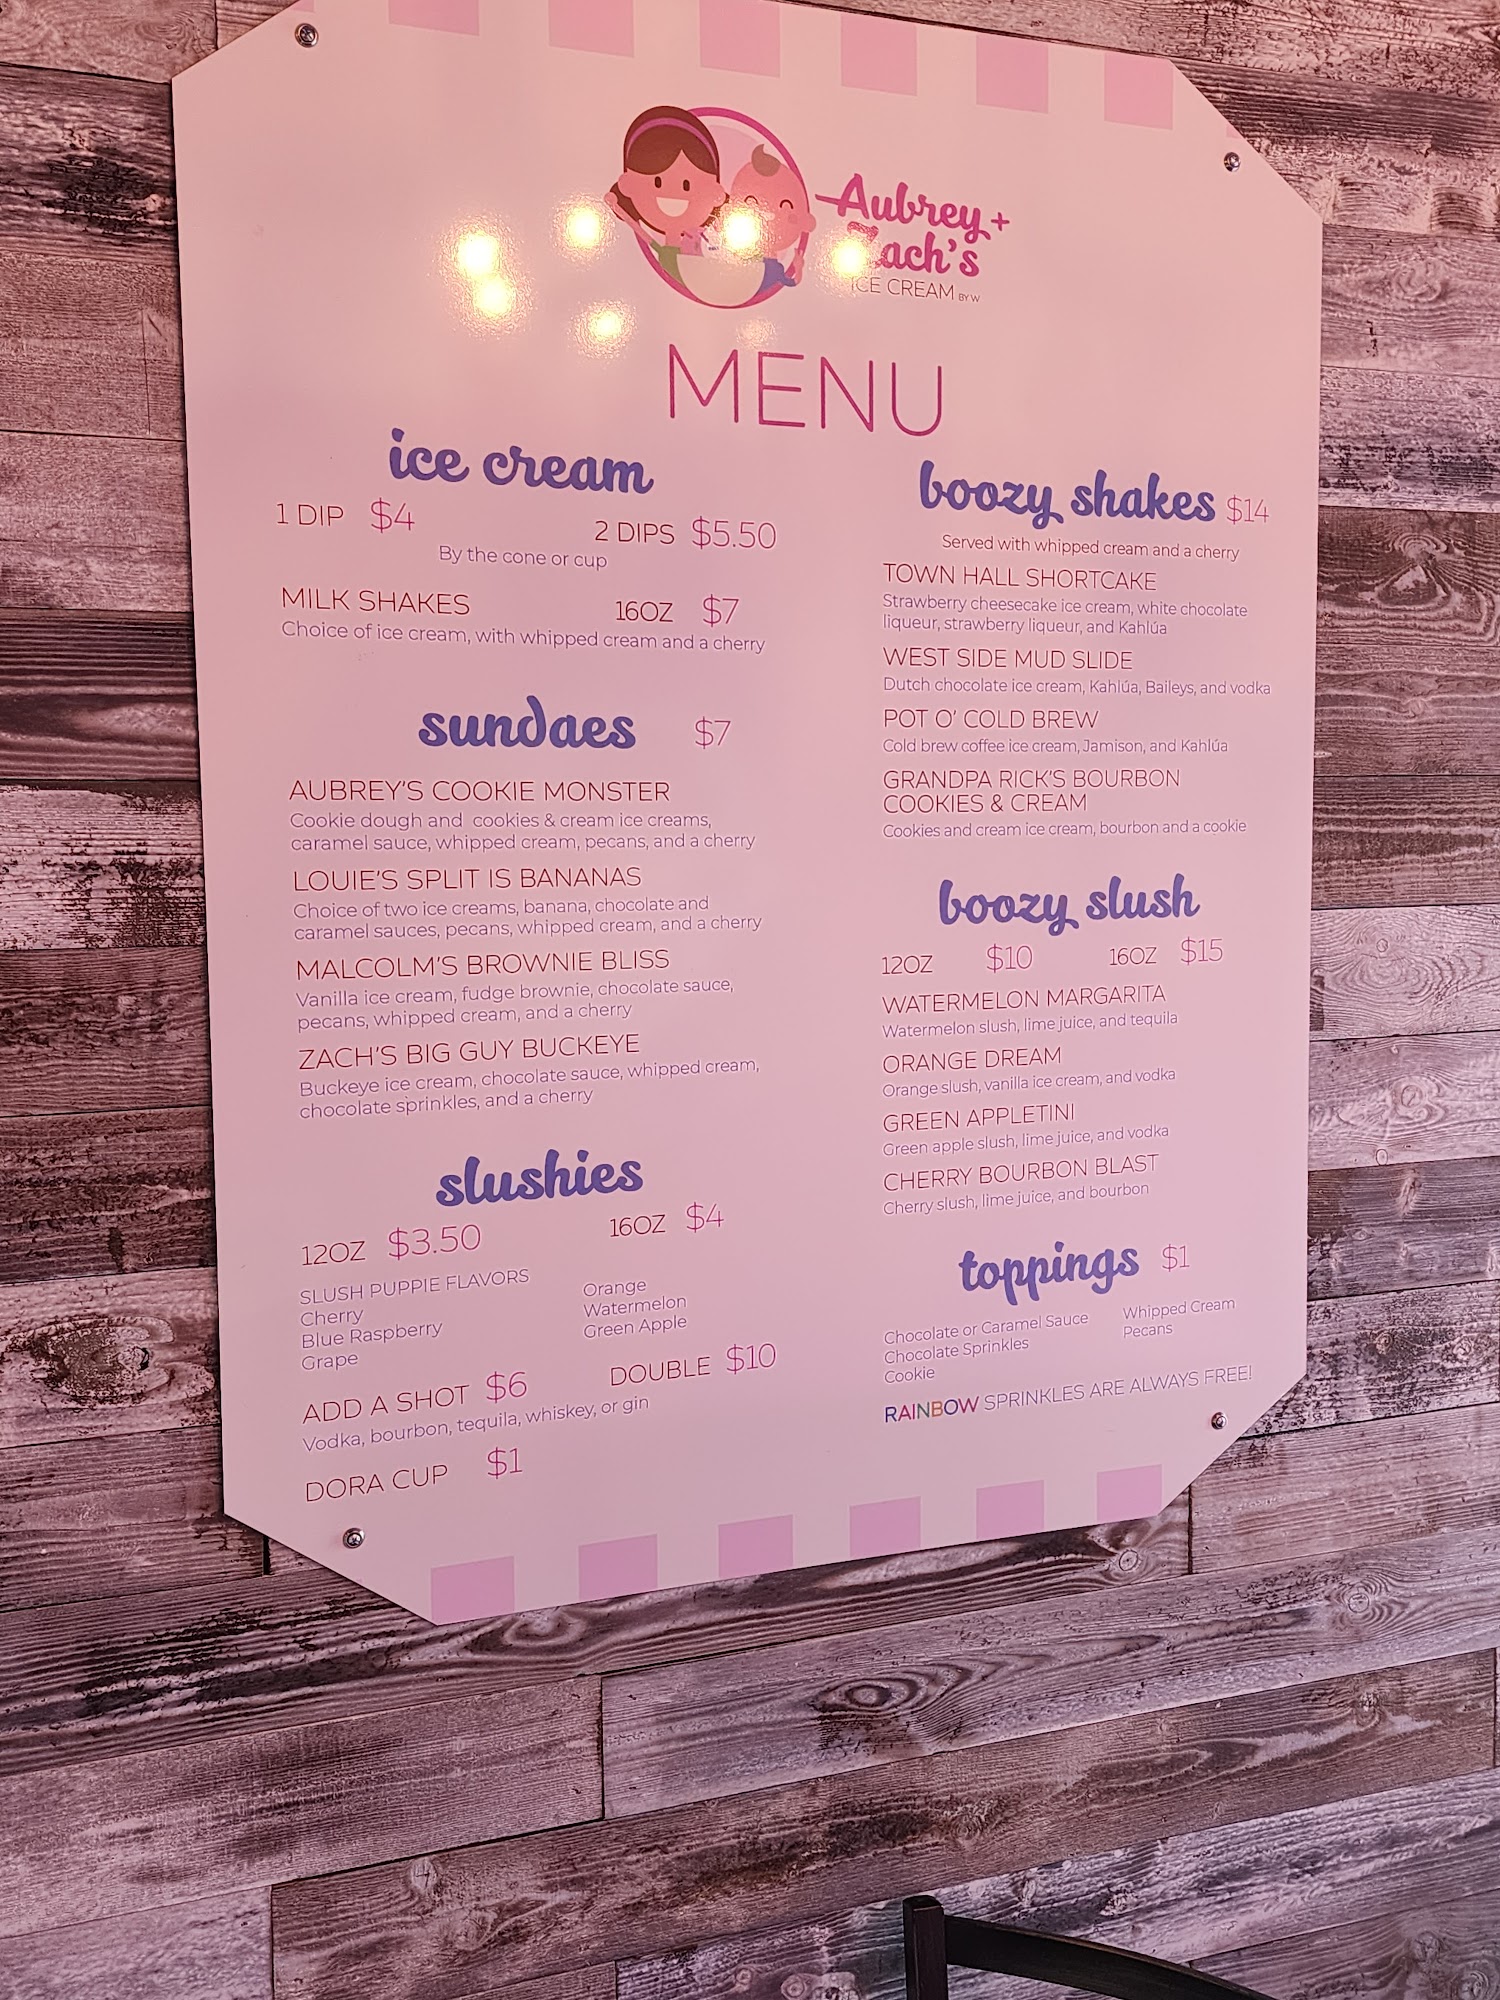 Aubrey +
Zach's
ICE CREAM BY W
MENU
ice cream
1 DIP $4 2 DIPS $5.50
By the cone or cup
MILK SHAKES 16OZ $7
Choice of ice cream, with whipped cream and a cherry
sundaes $7
AUBREY'S COOKIE MONSTER
Cookie dough and cookies & cream ice creams,
caramel sauce, whipped cream, pecans, and a cherry
LOUIE'S SPLIT IS BANANAS
Choice of two ice creams, banana, chocolate and
caramel sauces, pecans, whipped cream, and a cherry
MALCOLM'S BROWNIE BLISS
Vanilla ice cream, fudge brownie, chocolate sauce,
pecans, whipped cream, and a cherry
ZACH'S BIG GUY BUCKEYE
Buckeye ice cream, chocolate sauce, whipped cream,
chocolate sprinkles, and a cherry
slushies
12OZ $3.50 16OZ $4
SLUSH PUPPIE FLAVORS
Cherry
Blue Raspberry
Grape
Orange
Watermelon
Green Apple
ADD A SHOT $6 DOUBLE $10
Vodka, bourbon, tequila, whiskey, or gin
DORA CUP $1
boozy shakes $14
Served with whipped cream and a cherry
TOWN HALL SHORTCAKE
Strawberry cheesecake ice cream, white chocolate
liqueur, strawberry liqueur, and Kahlúa
WEST SIDE MUD SLIDE
Dutch chocolate ice cream, Kahlúa, Baileys, and vodka
POT O' COLD BREW
Cold brew coffee ice cream, Jamison, and Kahlúa
GRANDPA RICK'S BOURBON
COOKIES & CREAM
Cookies and cream ice cream, bourbon and a cookie
boozy slush
12OZ $10 16OZ $15
WATERMELON MARGARITA
Watermelon slush, lime juice, and tequila
ORANGE DREAM
Orange slush, vanilla ice cream, and vodka
GREEN APPLETINI
Green apple slush, lime juice, and vodka
CHERRY BOURBON BLAST
Cherry slush, lime juice, and bourbon
toppings $1
Chocolate or Caramel Sauce
Chocolate Sprinkles
Cookie
Whipped Cream
Pecans
RAINBOW SPRINKLES ARE ALWAYS FREE!